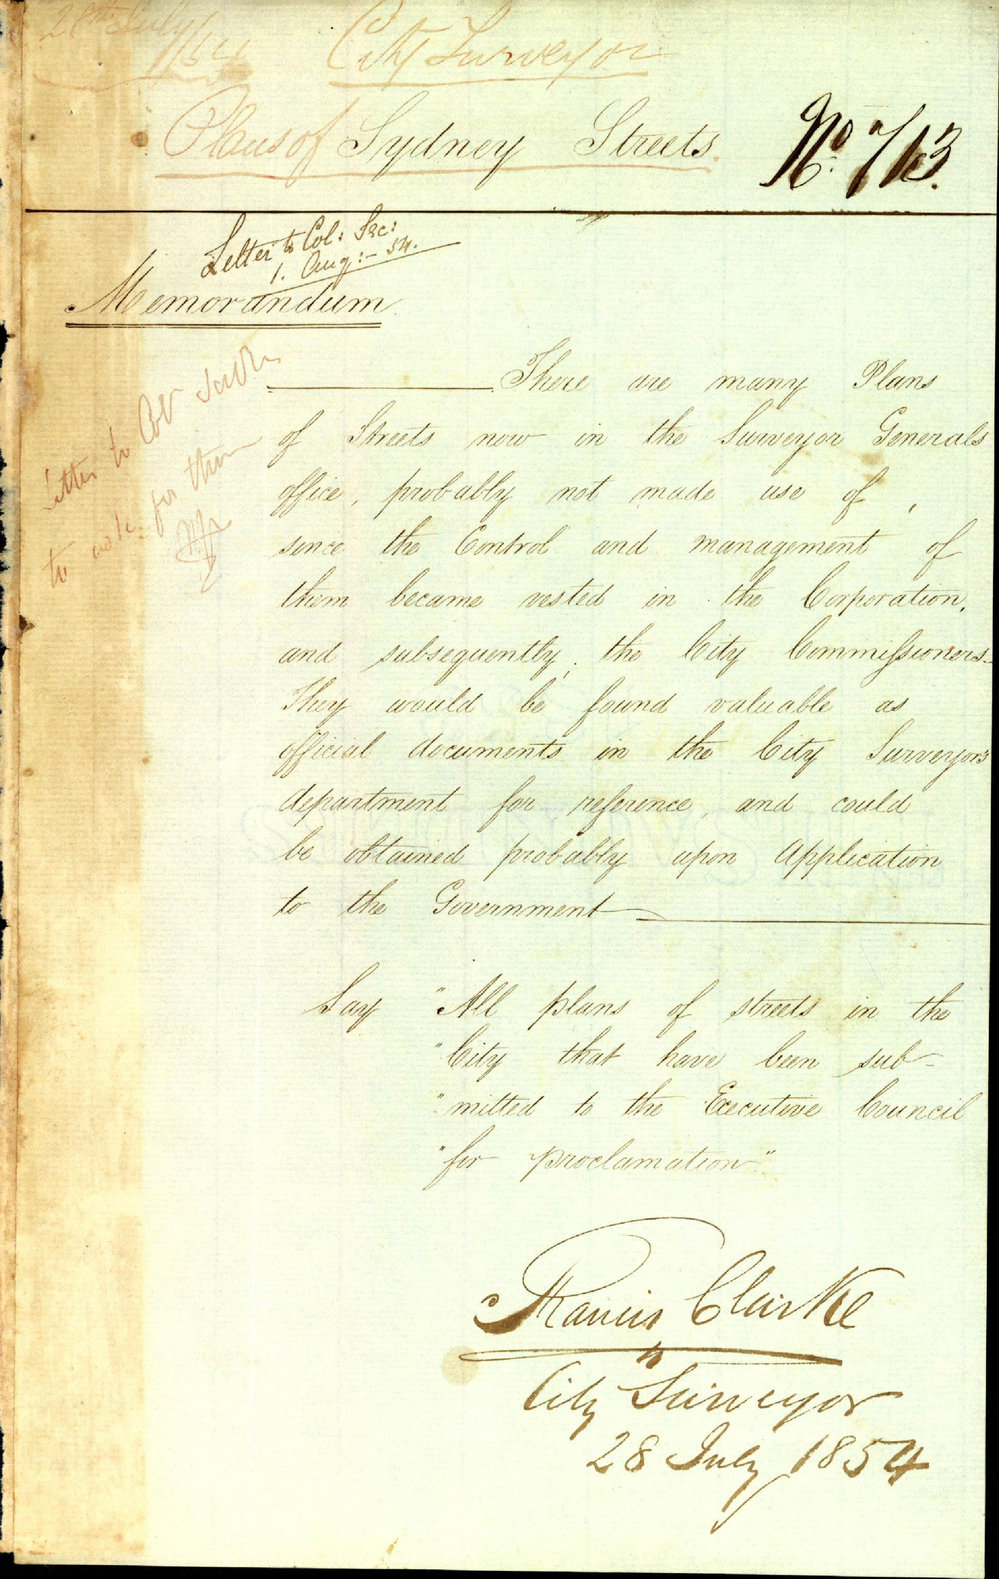 28th July/54
City Surveyor
Plans of Sydney Streets.
No. 713.
Letter to Col: Sec:
1. Aug:- 54.
Memorandum.
letter to Col Secr
to ask for them
There are many Plans
of Streets now in the Surveyor Generals
office, probably not made use of,
since the Control and management of
them became vested in the Corporation,
and subsequently, the City Commissioners.
They would be found valuable as
official documents in the City Surveyor's
department for reference, and could
be obtained probably upon Application
to the Government
Say "All plans of streets in the
"City that have been sub-
"mitted to the Executive Council
"for proclamation"
Francis Clarke
City Surveyor
28 July 1854